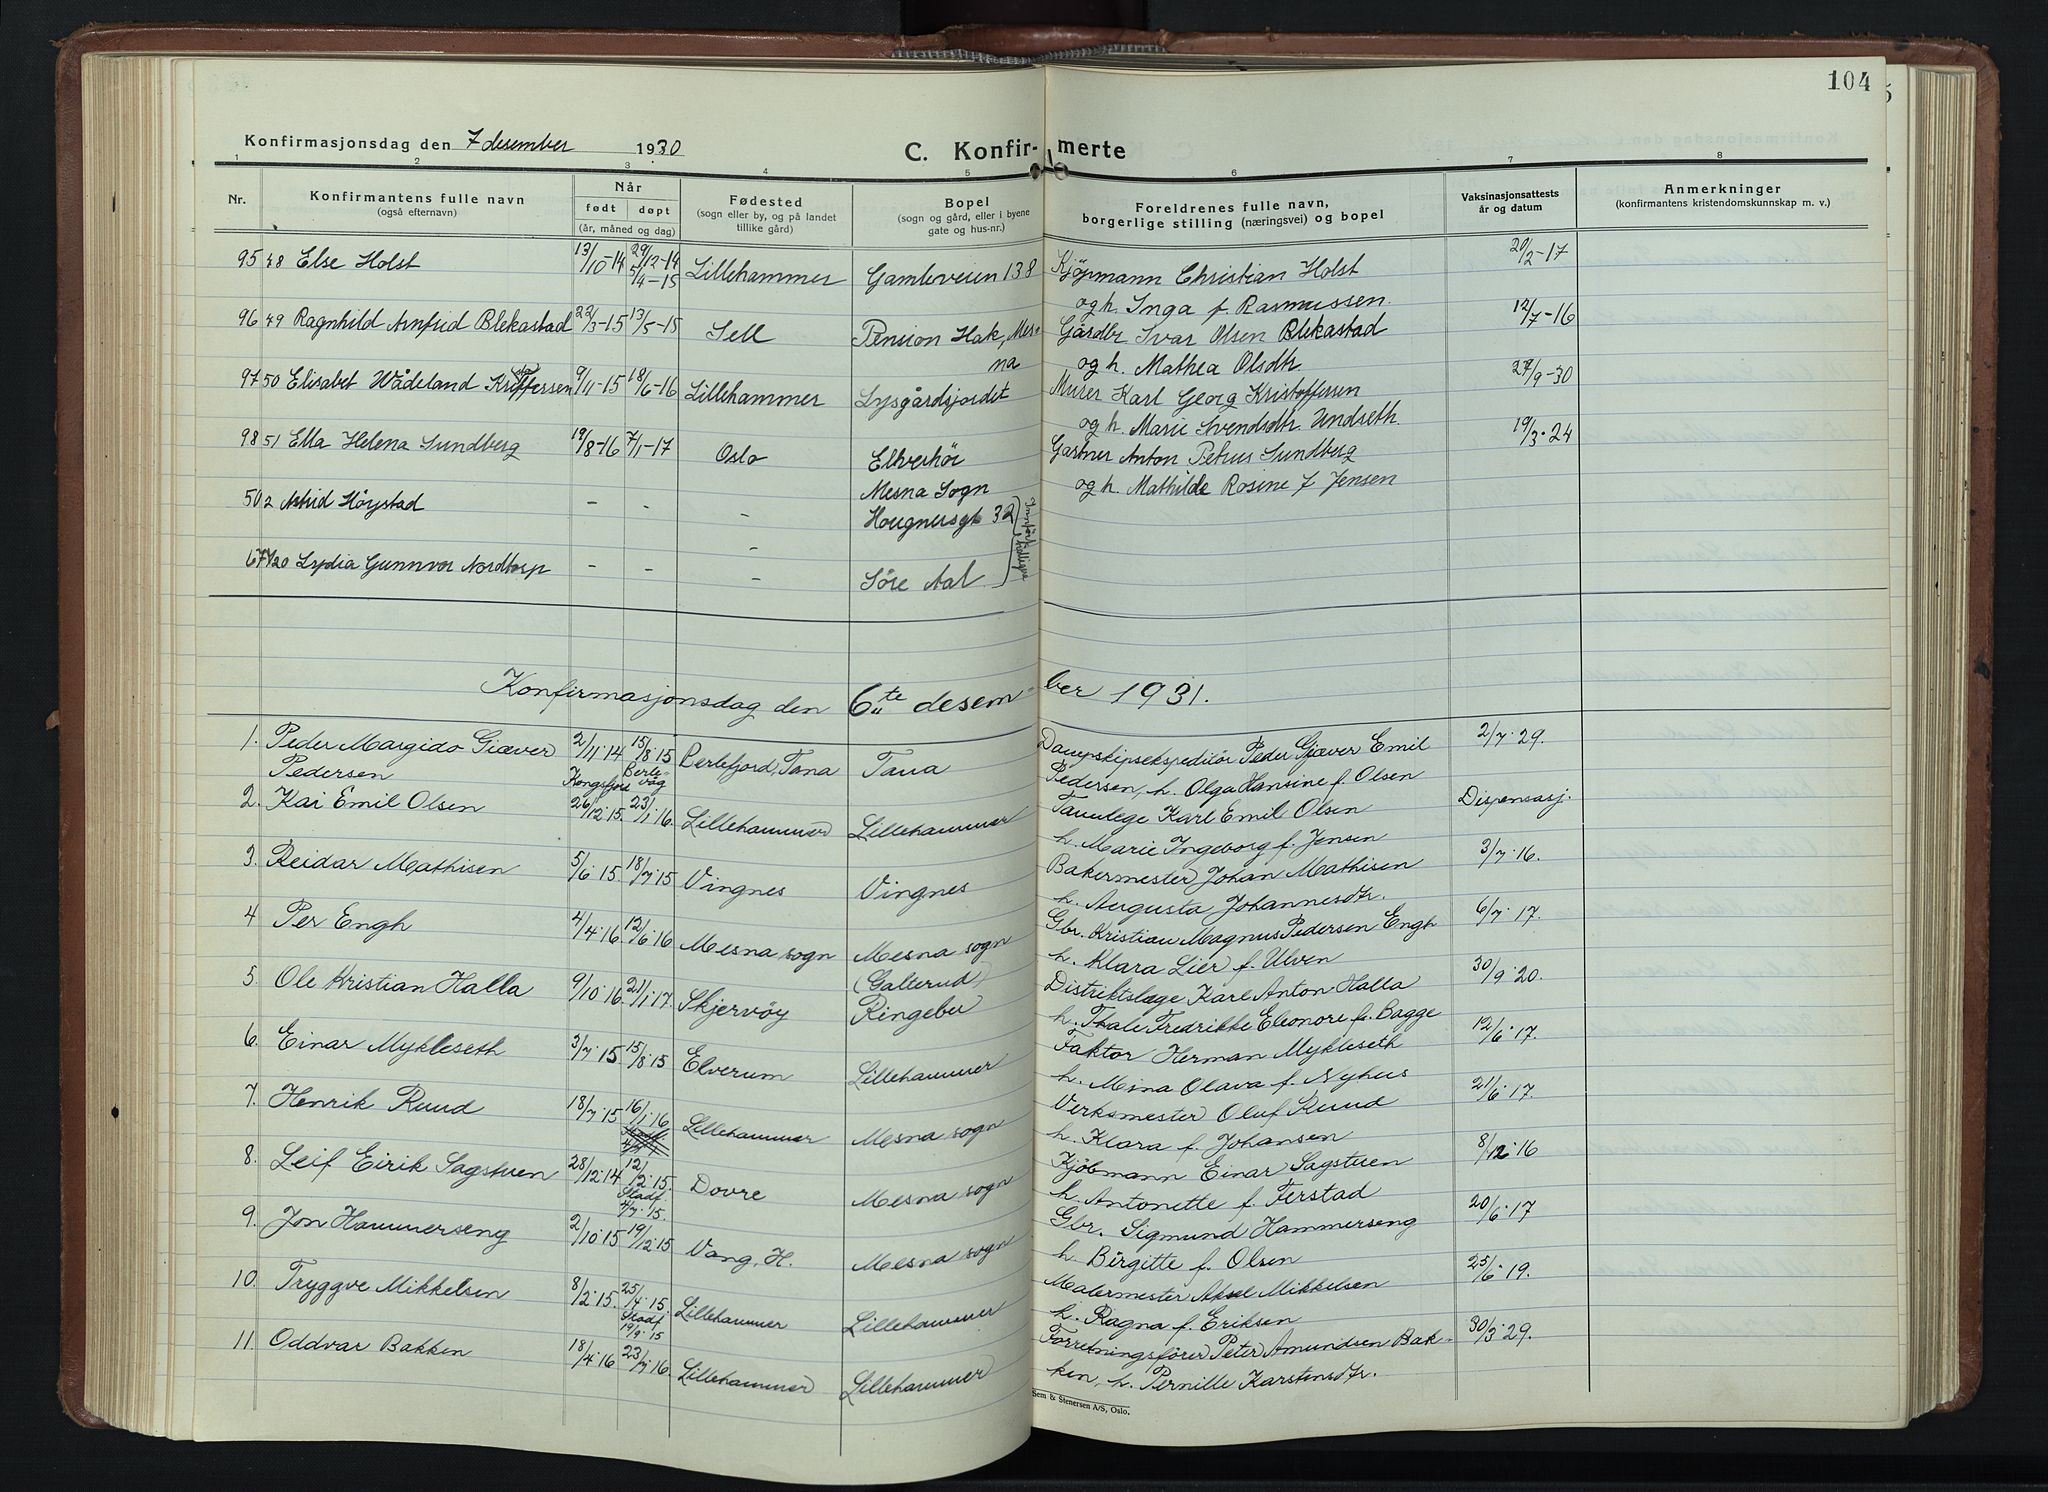 104
Konfirmasjonsdag den 7 desember 1930
C. Konfirmerte
1 2 3 4 5 6 7 8
Nr. Konfirmantens fulle navn (også efternavn) Når født døpt (år, måned og dag) Fødested (sogn eller by, og på landet tillike gård) Bopel (sogn og gård, eller i byene gate og hus-nr.) Foreldrenes fulle navn, borgerlige stilling (næringsvei) og bopel Vaksinasjonsattests år og datum Anmerkninger (konfirmantens kristendomskunnskap m. v.)
95 48 Else Holst 13/10-14 29/12-14 5/4-15 Lillehammer Gamleveien 138 Kjøpmann Christian Holst 20/2-17
og h. Inga f. Rasmussen.
96 49 Ragnhild Arnfrid Blekastad 22/3-15 13/5-15 Sell Pension Hak, Mesna Gårdbr Ivar Olsen Blekastad 12/7-16
og h. Mathea Olsdtr.
97 50 Elisabet Wådeland Kristoffersen 9/11-15 18/6-16 Lillehammer Lysgårdsjordet Murer Karl Georg Kristoffersen 27/9-30
og h. Marie Svendsdtr. Undseth.
98 51 Ella Helena Sundberg 19/8-16 7/1-17 Oslo Elverhöi Gartner Anton Petrus Sundberg 19/3-24
Mesna Sogn og h. Mathilde Rosine f Jensen
50 2 Astrid Höystad - - - Hougnersgt 32
67 20 Lydia Gunnvor Nordtorp - - - Söre Aal
Konfirmasjonsdag den 6te desember 1931.
1. Peder Margido Giæver Pedersen 2/11 14 Kongsfjord 15/8 15 Berlevåg Berlefjord, Tana Tana Dampskipsekspeditör Peder Gjæver Emil 2/7 29.
Pedersen, h. Olga Hansine f. Olsen
2. Kai Emil Olsen 26/12 15. 23/1 16. Lillehammer Lillehammer Tannlege Karl Emil Olsen Dispensasj.
h. Marie Ingeborg f. Jensen
3. Reidar Mathisen 5/6 15. 18/7 15 Vingnes Vingnes Bakermester Johan Mathisen 3/7 16.
h. Augusta Johannesdtr.
4 Per Engh 4/4 16. 12/6 16 Mesna sogn Mesna sogn (Galterud) Gbr. Kristian Magnus Pedersen Engh 6/7 17.
h. Klara Lier f. Ulven
5. Ole Kristian Halla 9/10 16. 21/1 17. Skjervöy Ringebu Distriktslæge Karl Anton Halla 30/9 20.
h. Thale Fredrikke Eleonore f. Bagge
6. Einar Mykleseth 3/7 15 15/8 15 Elverum Lillehammer Faktor Herman Mykleseth 12/6 17.
h. Mina Olava f. Nyhus
7. Henrik Ruud 18/7 15 16/1 16 Lillehammer Mesna sogn Verksmester Oluf Ruud 21/6 17.
h. Klara f. Johansen
8. Leif Eirik Sagstuen 28/12 14 12/12 15. Stadf. 4/7 15. Dovre Mesna sogn Kjöbmann Einar Sagstuen 8/12 16
h. Antonette f. Ferstad
9. Jon Hammerseng 2/10 15 19/12 15 Vang, H. Mesna sogn Gbr. Sigmund Hammerseng 20/6 17
h. Birgitte f. Olsen
10. Tryggve Mikkelsen 8/2 15. 25/4 15. Stadf 19/9 15 Lillehammer Lillehammer Malermester Aksel Mikkelsen 25/6 19.
h. Ragna f. Eriksen
11. Oddvar Bakken 18/4 16 23/7 16. Lillehammer Lillehammer Forretningsförer Peter Amundsen Bak- 30/3 29.
ken, h. Pernille Karstensdtr.
Sem & Stenersen A/S, Oslo.